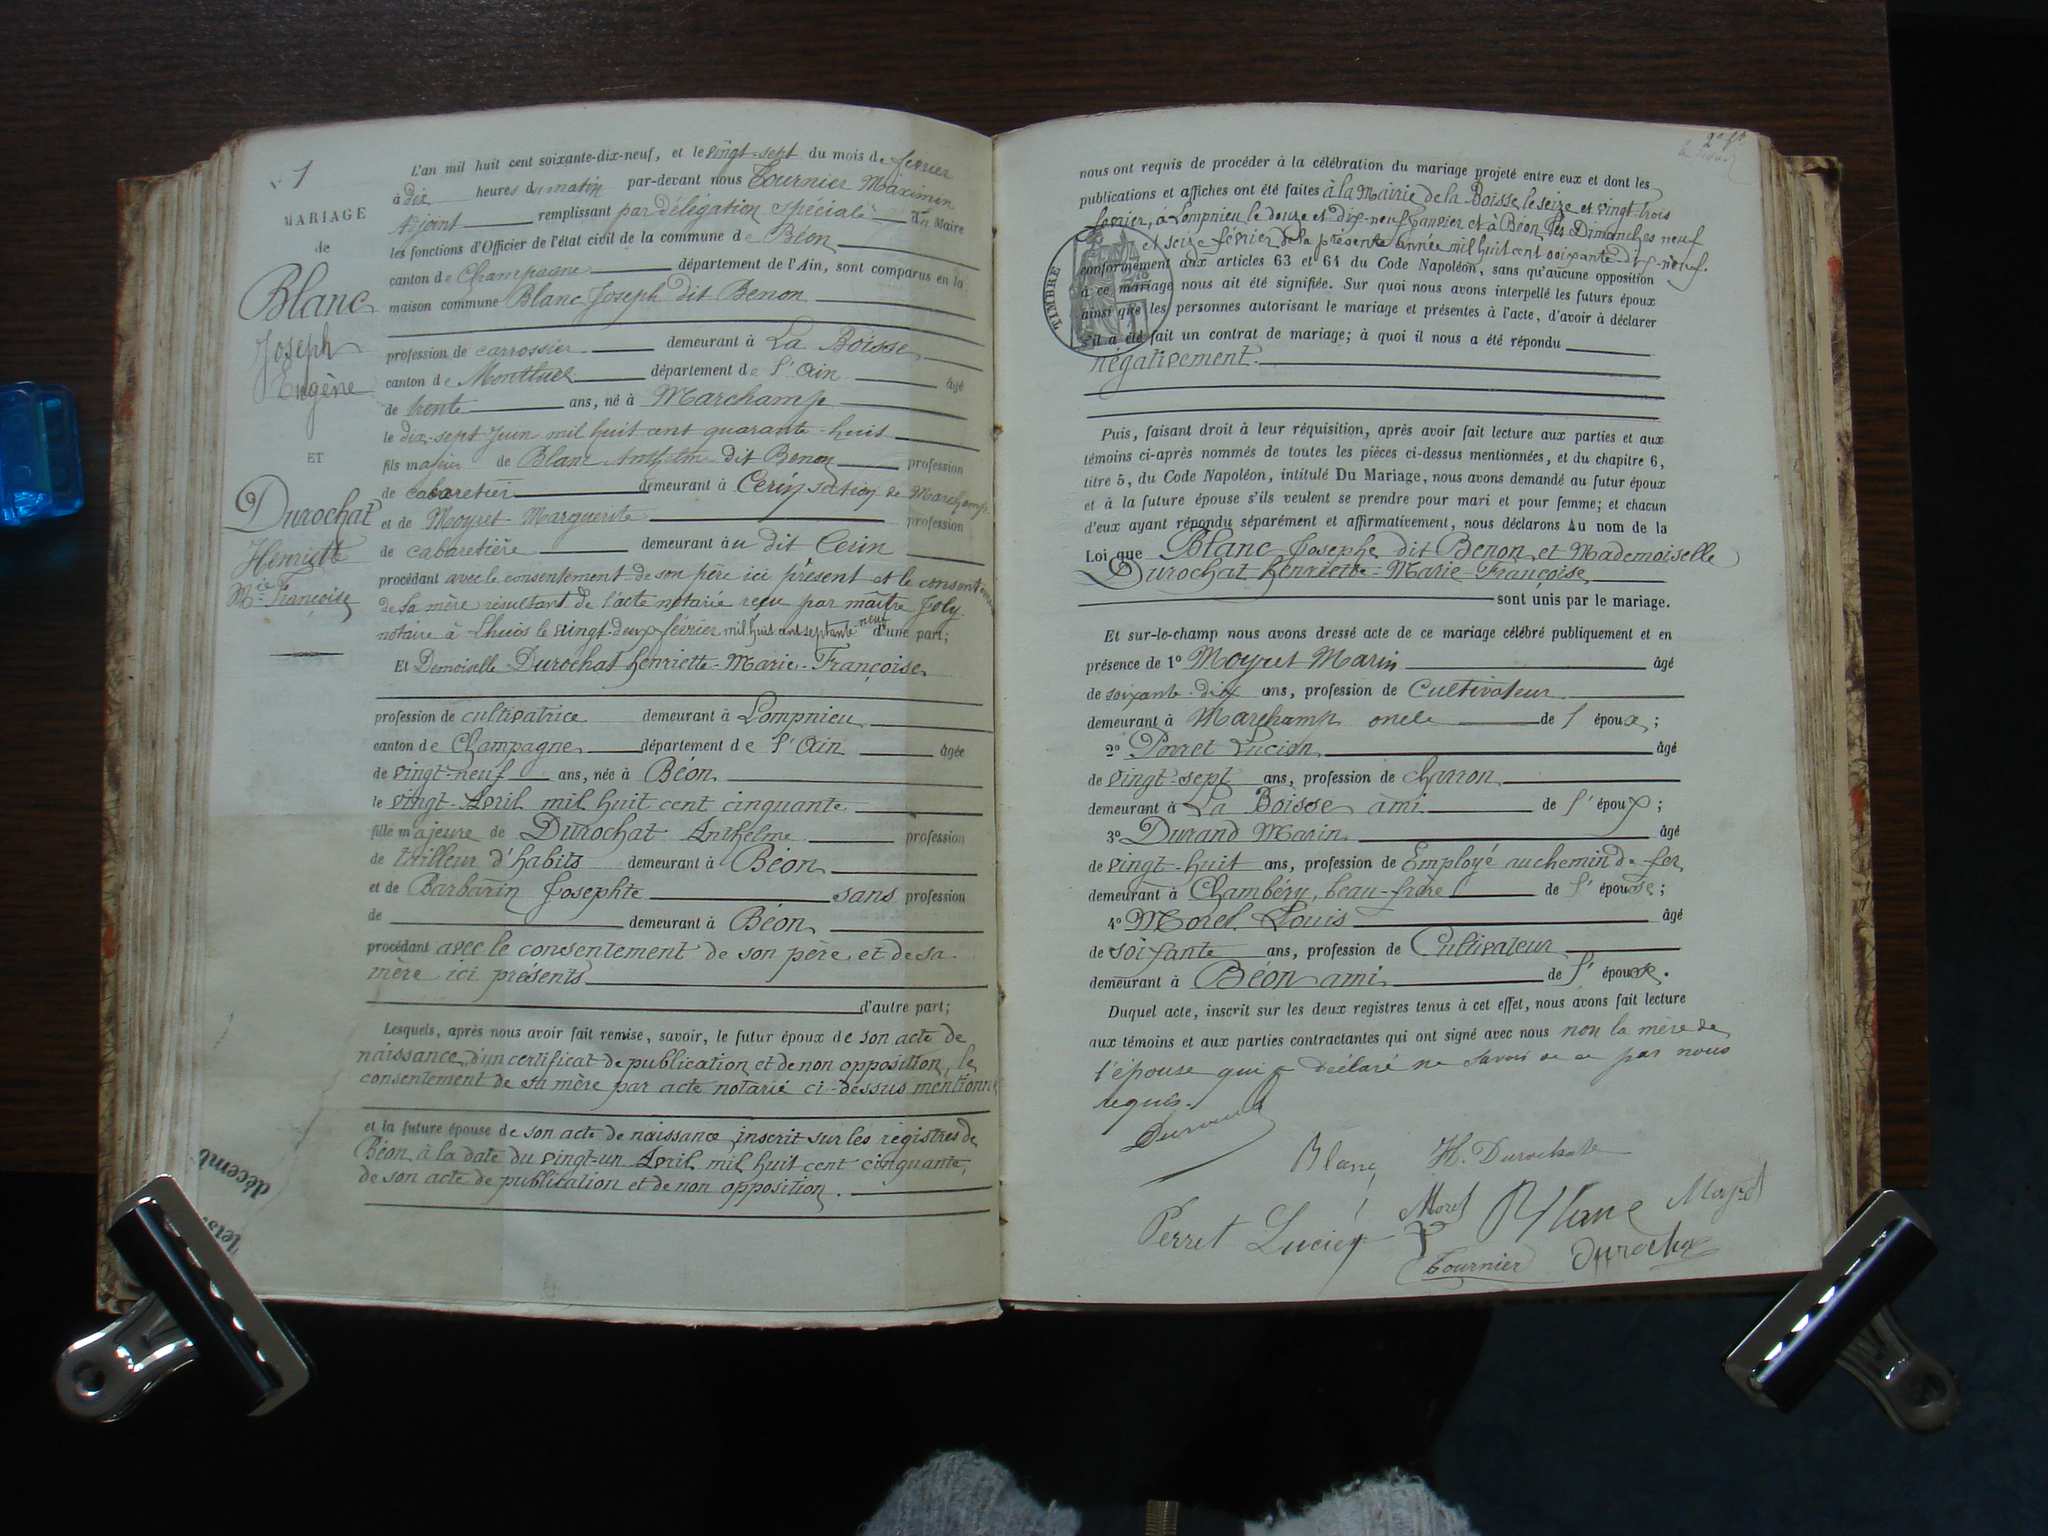 1
MARIAGE
de
Blanc
Joseph
Eugène
ET
Durochat
Henriette
Mie Françoise
L'an mil huit cent soixante-dix-neuf, et le vingt-sept du mois de février
à dix heures du matin par-devant nous Tournier Maximin
Adjoint remplissant par délégation spéciale du Maire
les fonctions d'Officier de l'état civil de la commune de Béon
canton de Champagne département de l'Ain, sont comparus en la
maison commune Blanc Joseph dit Benon
profession de carrossier demeurant à La Boisse
canton de Montluel département de l'Ain âgé
de trente ans, né à Marchamp
le dix-sept Juin mil huit cent quarante-huit
fils majeur de Blanc Anthelme dit Benon profession
de cabaretier demeurant à Cerin section de Marchamp
et de Moyret Marguerite profession
de cabaretière demeurant au dit Cerin
procédant avec le consentement de son père ici présent et le consentement
de sa mère résultant de l'acte notarié reçu par maître Joly
notaire à Lhuis le vingt-deux février mil huit cent septante neuf d'une part;
Et Demoiselle Durochat Henriette-Marie-Françoise
profession de cultivatrice demeurant à Lompnieu
canton de Champagne département de l'Ain âgée
de vingt-neuf ans, née à Béon
le vingt-Avril mil huit cent cinquante
fille majeure de Durochat Anthelme profession
de tailleur d'habits demeurant à Béon
et de Barbarin Josephte sans profession
de demeurant à Béon
procédant avec le consentement de son père et de sa
mère ici présents
d'autre part;
Lesquels, après nous avoir fait remise, savoir, le futur époux de son acte de
naissance, d'un certificat de publication et de non opposition, le
consentement de sa mère par acte notarié ci-dessus mentionné
et la future épouse de son acte de naissance inscrit sur les registres de
Béon à la date du vingt-un Avril mil huit cent cinquante,
de son acte de publication et de non opposition.
décemb
2e ft
nous ont requis de procéder à la célébration du mariage projeté entre eux et dont les
publications et affiches ont été faites à la Mairie de la Boisse le seize et vingt trois
février, à Lompnieu le douze et dix-neuf Janvier et à Béon les Dimanches neuf
et seize février de la présente année mil huit cent soixante-dix-neuf.
TIMBRE
conformément aux articles 63 et 64 du Code Napoléon, sans qu'aucune opposition
à ce mariage nous ait été signifiée. Sur quoi nous avons interpellé les futurs époux
ainsi que les personnes autorisant le mariage et présentes à l'acte, d'avoir à déclarer
s'il a été fait un contrat de mariage; à quoi il nous a été répondu
négativement.
Puis, faisant droit à leur réquisition, après avoir fait lecture aux parties et aux
témoins ci-après nommés de toutes les pièces ci-dessus mentionnées, et du chapitre 6,
titre 5, du Code Napoléon, intitulé Du Mariage, nous avons demandé au futur époux
et à la future épouse s'ils veulent se prendre pour mari et pour femme; et chacun
d'eux ayant répondu séparément et affirmativement, nous déclarons Au nom de la
Loi que Blanc Josephe dit Benon et Mademoiselle
Durochat Henriette-Marie-Françoise
sont unis par le mariage.
Et sur-le-champ nous avons dressé acte de ce mariage célébré publiquement et en
présence de 1º Moyret Marin âgé
de soixante-dix ans, profession de Cultivateur
demeurant à Marchamp oncle de l'époux;
2º Perret Lucien âgé
de vingt-sept ans, profession de charron
demeurant à La Boisse ami de l'époux;
3º Durand Marin âgé
de vingt-huit ans, profession de Employé au chemin de fer
demeurant à Chambéry, beau-frère de l'épouse;
4º Morel Louis âgé
de soixante ans, profession de Cultivateur
demeurant à Béon ami de l'épouse.
Duquel acte, inscrit sur les deux registres tenus à cet effet, nous avons fait lecture
aux témoins et aux parties contractantes qui ont signé avec nous non la mère de
l'épouse qui a déclaré ne savoir de ce par nous
requis.
Durand
Blanc H. Durochat
Perret Lucien Morel Blanc Moyret
Tournier Durochat